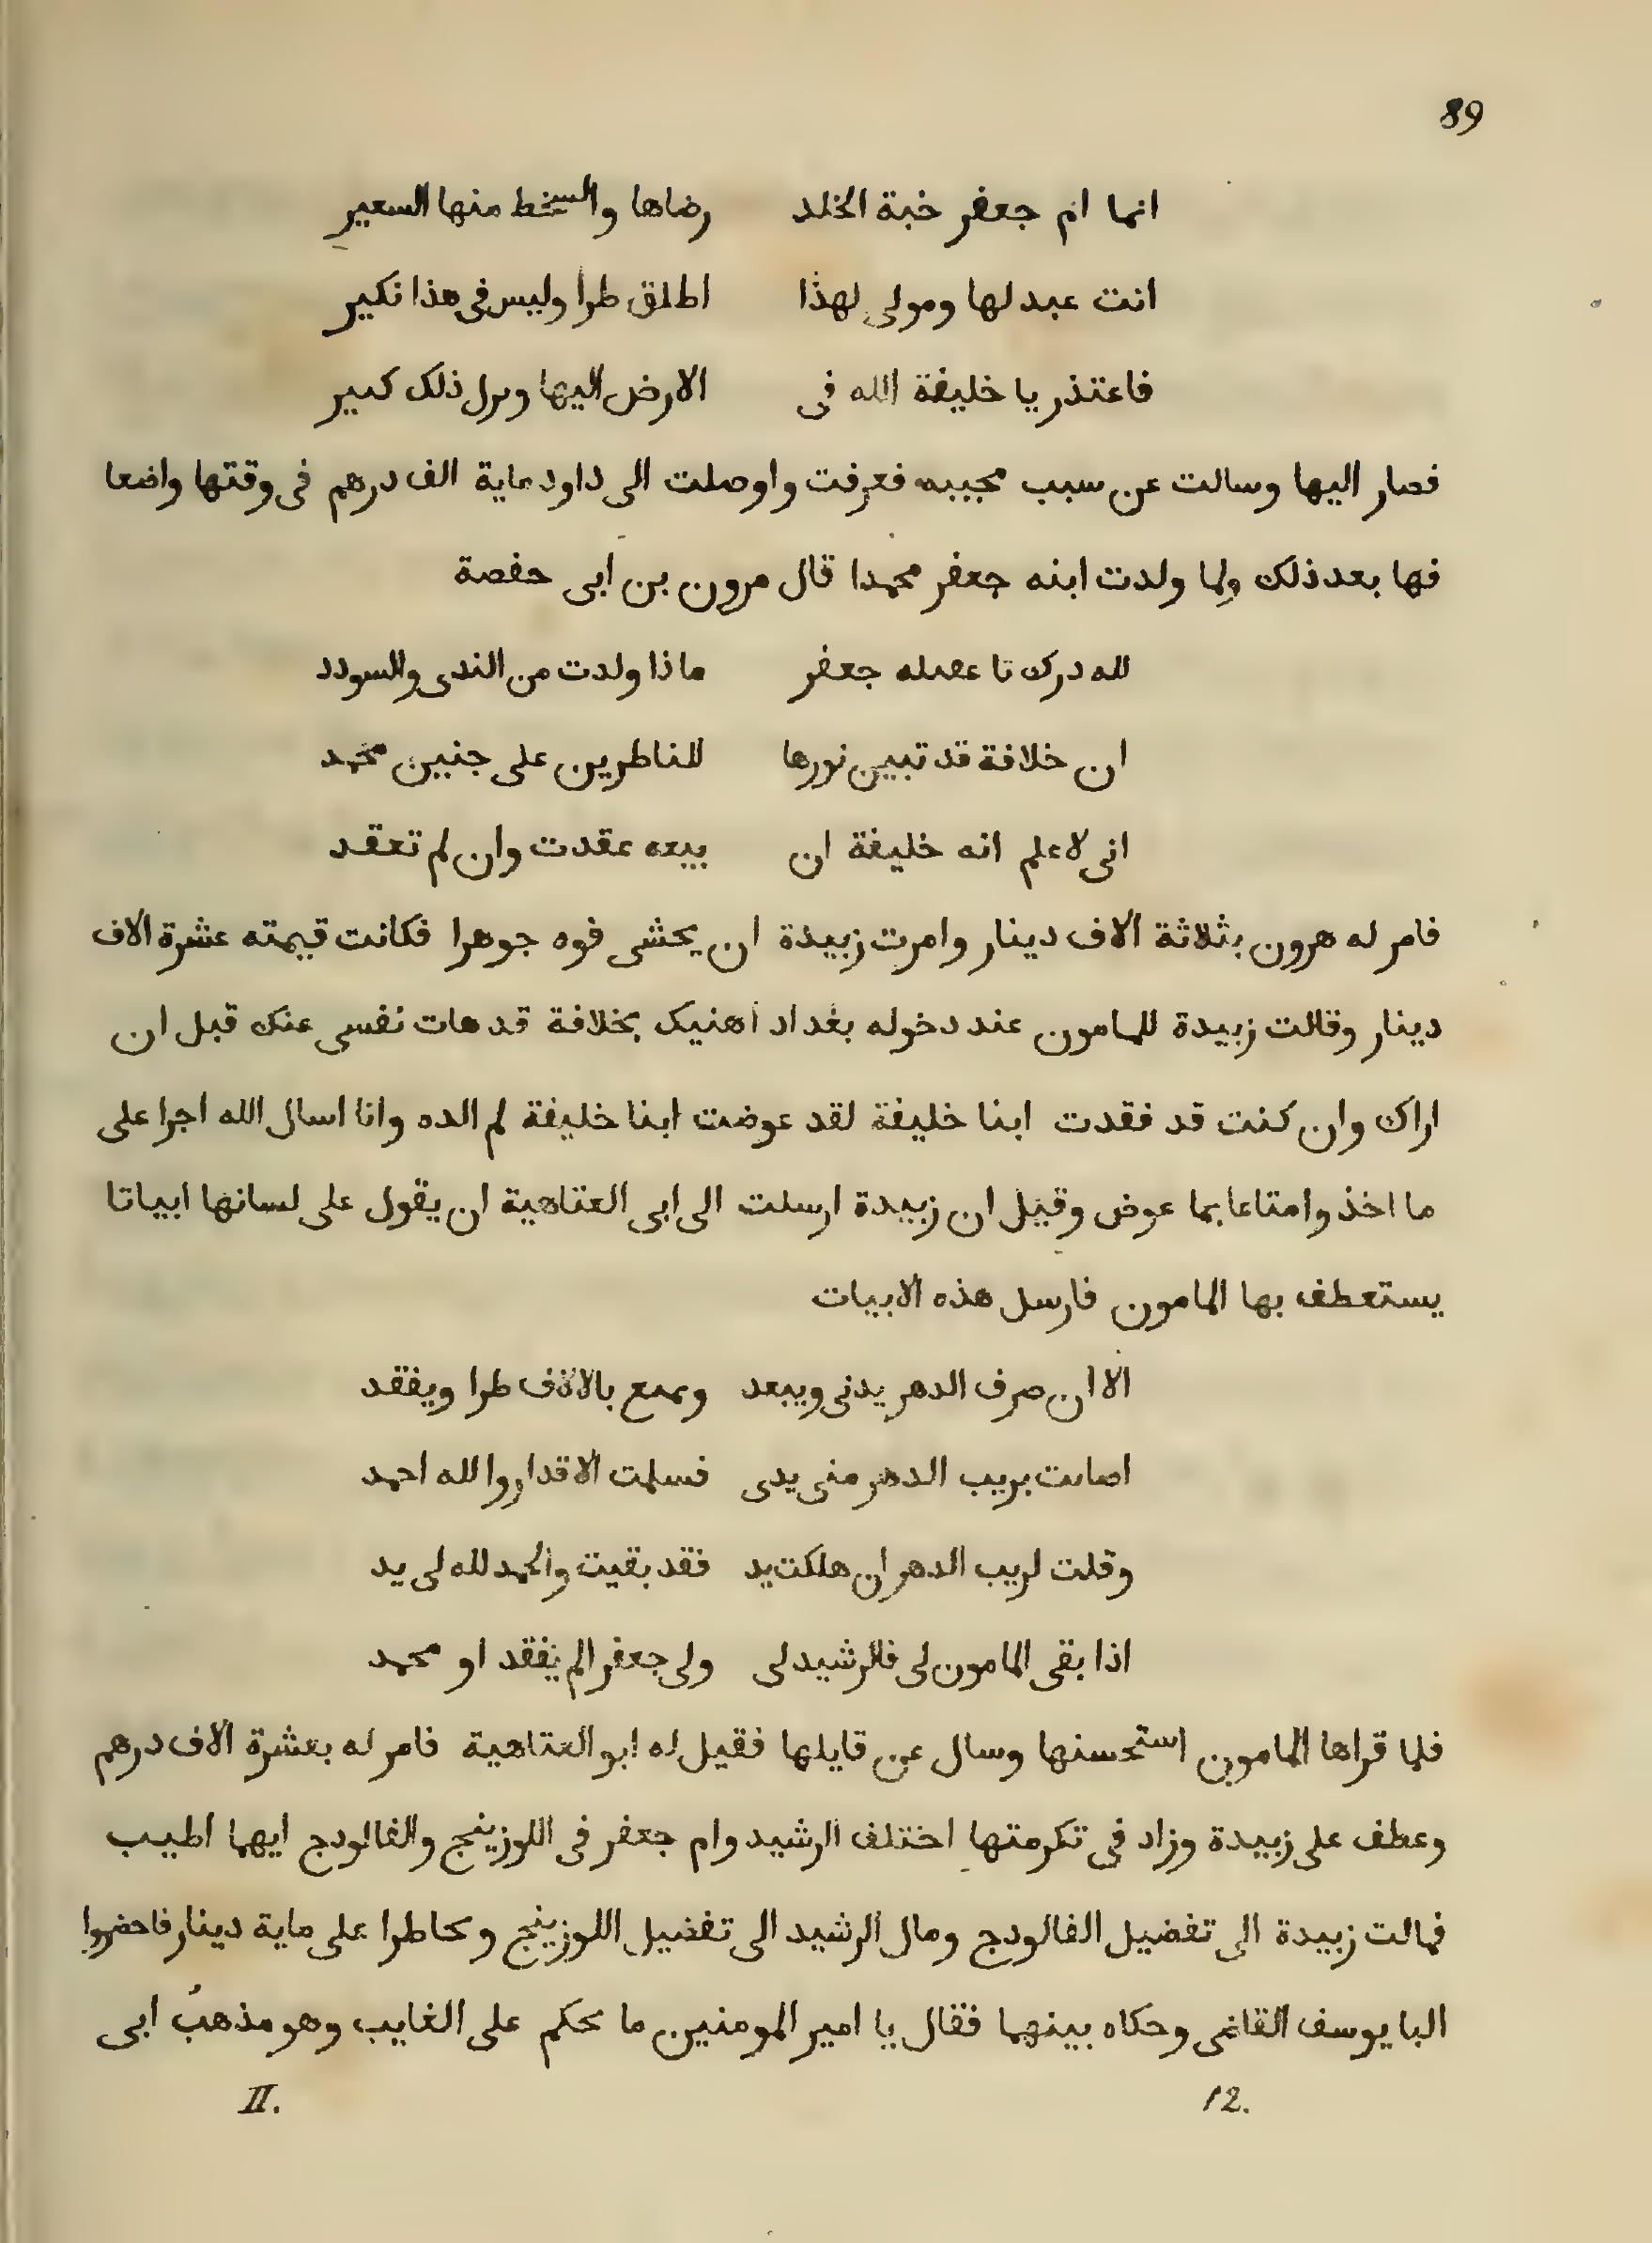 89
انما ام جعفر خبة الخلد رضاها والسخط منها السعير
انت عبد لها ومولى لهذا اطلق طرا وليس فى هذا نكير
فاعتذر يا خليفة الله فى الارض اليها وىرل ذلك كىىر
فصار اليها وسالت عن سبب مجيبه فعرفت واوصلت الى داود ماية الف درهم فى وقتها واضعا
فها بعد ذلك ولما ولدت ابنه جعفر محمدا قال مرون بن ابى حفصة
لله درك تا عفىله جعفر ماذا ولدت من الندى والسودد
ان خلافة قد تبين نورها للناظرين على جنبين محمد
انى لاعلم انه خليفة ان بيعه عقدت وان لم تعقد
فامر له هرون بثلاثة الاف دينار وامرت زبيدة ان يحشى فوه جوهرا فكانت قيمته عشرة الاف
دينار وقالت زبيدة للمامون عند دخوله بغداد اهنيك بخلافة قد هات نفسى عنك قبل ان
اراك وان كنت قد فقدت ابنا خليفة لقد عوضت ابنا خليفة لم الده وانا اسال الله اجرا على
ما اخذ وامتاعا بما عوض وقيل ان زبيدة ارسلت الى ابى العتاهية ان يقول على لسانها ابياتا
يستعطف بها المامون فارسل هذه الابيات
الا ان صرف الدهر يدنى ويبعد وىمىع بالالاف طرا ويفقد
اصاىت بريب الدهر منى يدى فسلمت الاقدار والله احمد
وقلت لريب الدهر ان هلكت يد فقد بقيت والحمد لله لى يد
اذا بقى المامون لى فالرشيد لى ولى جعفر الم يفقد او محمد
فلما قراها المامون استحسنها وسال عن قايلها فقيل له ابو العتاهية فامر له بعشرة الاف درهم
وعطف على زبيدة وزاد فى تكرمتها اختلف الرشيد وام جعفر فى اللوزينج والفالودج ايهما اطيب
فمالت زبيدة الى تفضيل الفالودج ومال الرشيد الى تفضيل اللوزينج وىحاطرا على ماية دينار فاحضروا
البا يوسف القاضى وحكاه بينهما فقال يا امير المومنين ما ىحكم على الغايب وهو مذهب ابى
II. 12.